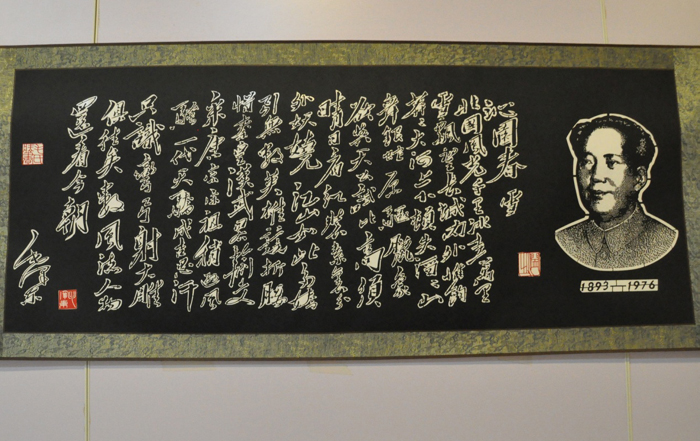 沁园春 雪
北国风光千里冰封万里
雪飘望长城内外惟余
莽莽大河上下顿失滔滔山
舞银蛇原驰蜡象
欲与天公试比高须
晴日看红装素裹分
外妖娆江山如此多娇
引无数英雄竞折腰
惜秦皇汉武略输文
采唐宗宋祖稍逊风
骚一代天骄成吉思汗
只识弯弓射大雕
俱往矣数风流人物
还看今朝
毛泽东
1893 1976